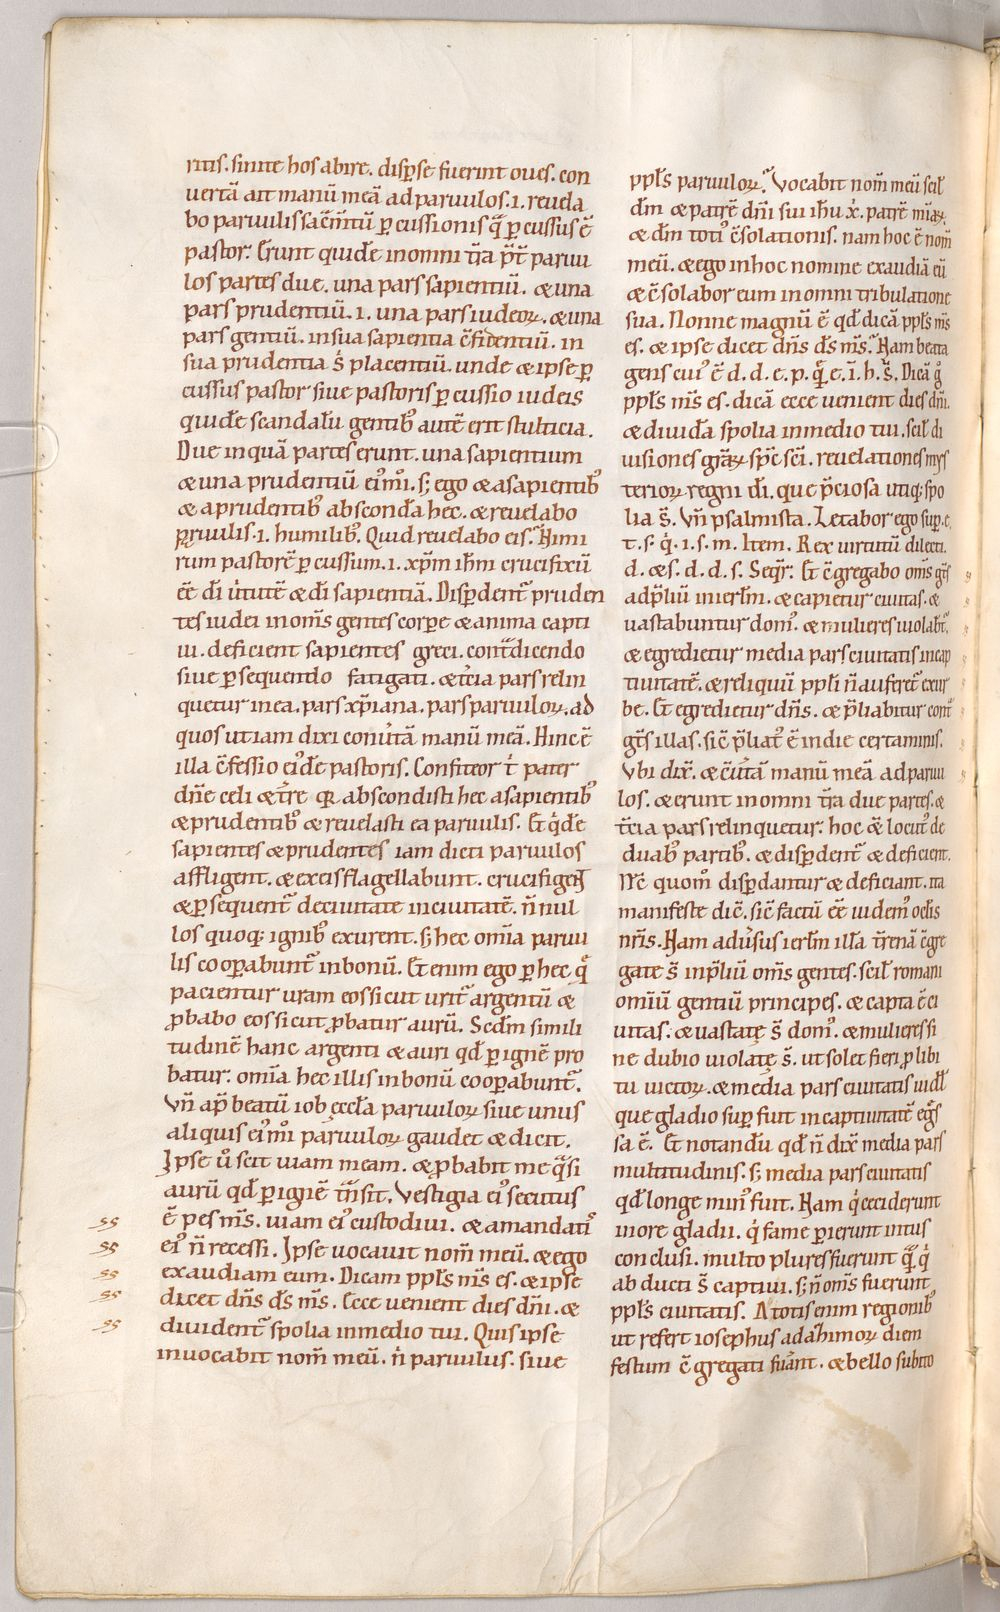 ritis. sinite hos abire. dispse fuerint oues. con
uertā ait manū meā ad paruulos .i. reuela
bo paruulis sac̄m̄tū p cussionis q̄ p cussus ē
pastor. Erunt quidē in omni t̄ra p̄t paruu
los partes due. una pars sapientiū. & una
pars prudentiū .i. una pars iudeoꝝ. & una
pars gentiū. in sua sapientia c̄fidentiū. in
sua prudentia s̓ placentiū. unde & ipse p
cussus pastor siue pastoris p cussio iudeis
quidē scandalū gentib; autē erit stulticia.
Due inquā partes erunt. una sapientium
& una prudentiū ei᷒m̊i. s; ego & a sapientib;
& a prudentib; abscondā hec. & reuelabo
paruulis .i. humilib;. Quid reuelabo eis? Nimi
rum pastorē p cussum .i. xp̄m ih̄m crucifixū
ēē dī ỻtutē & dī sapientiā. Dispdent̄ pruden
tes iudei in om̄s gentes corpe & anima capti
ui. deficient sapientes greci. cont̄dicendo
siue psequendo fatigati. & t̄cia pars relin
quetur in ea. pars xp̄iana. pars paruuloꝝ. ad
quos ut iam dixi conu̓tā manū meā. Hinc ē
illa c̄fessio ei᷒dē pastoris. Confiteor t̓ pater
dn̄e celi & t̄re qꝛ abscondisti hec a sapientib;
& prudentib; & reuelasti ea paruulis. Et q̓dē
sapientes & prudentes iam dicti paruulos
affligent. & ex eis flagellabunt. crucifigent
& psequent̄ de ciuitate in ciuitatē. n̄ nul
los quoq; ignib; exurent. s; hec om̄ia paruu
lis coopabunt̄ in bonū. Etenim ego p hec q̄
pacientur uram eos sicut urit̄ argentū &
ꝓbabo eos sicut ꝓbatur aurū. Scdm simili
tudinē hanc argenti & auri qd p ignē pro
batur. om̄ia hec illis in bonū coopabunt̄.
Vn̄ ap̄ beatū iob eccl̄a paruuloꝝ siue unus
aliquis ei᷒m̊i paruuloꝝ gaudet & dicit.
Ipse u̓ scit uiam meam. & ꝓbabit me q̄si
aurū qd p ignē t̄nsit. Vestigia ei᷒ secutus
ē pes m̄s. uiam ei᷒ custodiui. & a mandatis
ei᷒ n̄ recessi. Ipse uocauit nom̄ meū. & ego
exaudiam eum. Dicam ppl̄s m̄s es. & ipse
dicet dn̄s ds̄ m̄s. Ecce uenient dies dn̄i. &
diuident̄ spolia in medio tui. Quis ipse
inuocabit nom̄ meū. n̓ paruulus. siue
ppl̄s paruuloꝝ? Vocabit nom̄ meū scil̄
dm̄ & patrē dn̄i sui ih̄u x̓. patrē mi᷒aꝝ.
& dm̄ toti᷒ c̄solationis. nam hoc ē nom̄
meū. & ego in hoc nomine exaudiā eū
& c̄solabor eum in omni tribulatione
sua. Nonne magnū ē qd dicā ppl̄s m̄s
es. & ipse dicet dn̄s ds̄ m̄s? Nam beata
gens cui᷒ ē d. d. e. p. q̄ e. i. h. s̄. Dicā g̊
ppl̄s m̄s es. dicā ecce uenient dies dn̄i.
& diuidā spolia in medio tui. scil̄ di
uisiones gr̄aꝝ sp̄c sc̄i. reuelationes mys
terioꝝ regni dī. que p̄ciosa utiq; spo
lia s̄. Vn̄ psalmista. Letabor ego sup. e.
t. s. q̓. i. s. m. Item. Rex uirtutū dilecti.
d. & s. d. d. s. Seqr̄. Et c̄gregabo om̄s gt̄s
ad p̄liū in ierlm̄. & capietur ciuitas. &
uastabuntur dom᷒. & mulieres uiolabt̄.
& egredietur media pars ciuitatis in cap
tiuitatē. & reliquū ppl̄i n̄ auferet̄ ex ur
be. Et egredietur dn̄s. & p̄liabitur cont̄
gt̄s illas. sic̄ p̄liat᷒ ē in die certaminis.
Vbi dix̄. & c̄u̓tā manū meā ad paruu
los. & erunt in omni t̄ra due partes. &
t̄cia pars relinquetur. hoc ē locut᷒ de
duab; partib;. & dispdent̄ & deficient.
N̄c quom̊ dispdantur & deficiant. ita
manifeste dic̄. sic̄ factū ēē uidem᷒ oclis
nr̄is. Nam adu̓sus ierlm̄ illā t̄renā c̄gre
gate s̄ in p̄liū om̄s gentes. scil̄ romani
omiū gentiū principes. & capta ē ci
uitas. & uastatę s̄ dom᷒. & mulieres si
ne dubio uiolatę s̄. ut solet fieri ꝓ libi
tu uictoꝝ. & media pars ciuitatis uidl̄
que gladio supfuit in captiuitatē eg̊s
sa ē. Et notandū qd n̄ dix̄ media pars
multitudinis. s; media pars ciuitatis
qd longe min᷒ fuit. Nam q̓ ceciderunt
in ore gladii. q̓ fame pierunt intus
conclusi. multo plures fuerunt q̄ q̓
abducti s̄ captiui. s; n̄ om̄s fuerunt
ppl̄s ciuitatis. A totis enim regionib;
ut refert iosephus ad aȥimoꝝ diem
festum c̄gregati fuānt. & bello subito